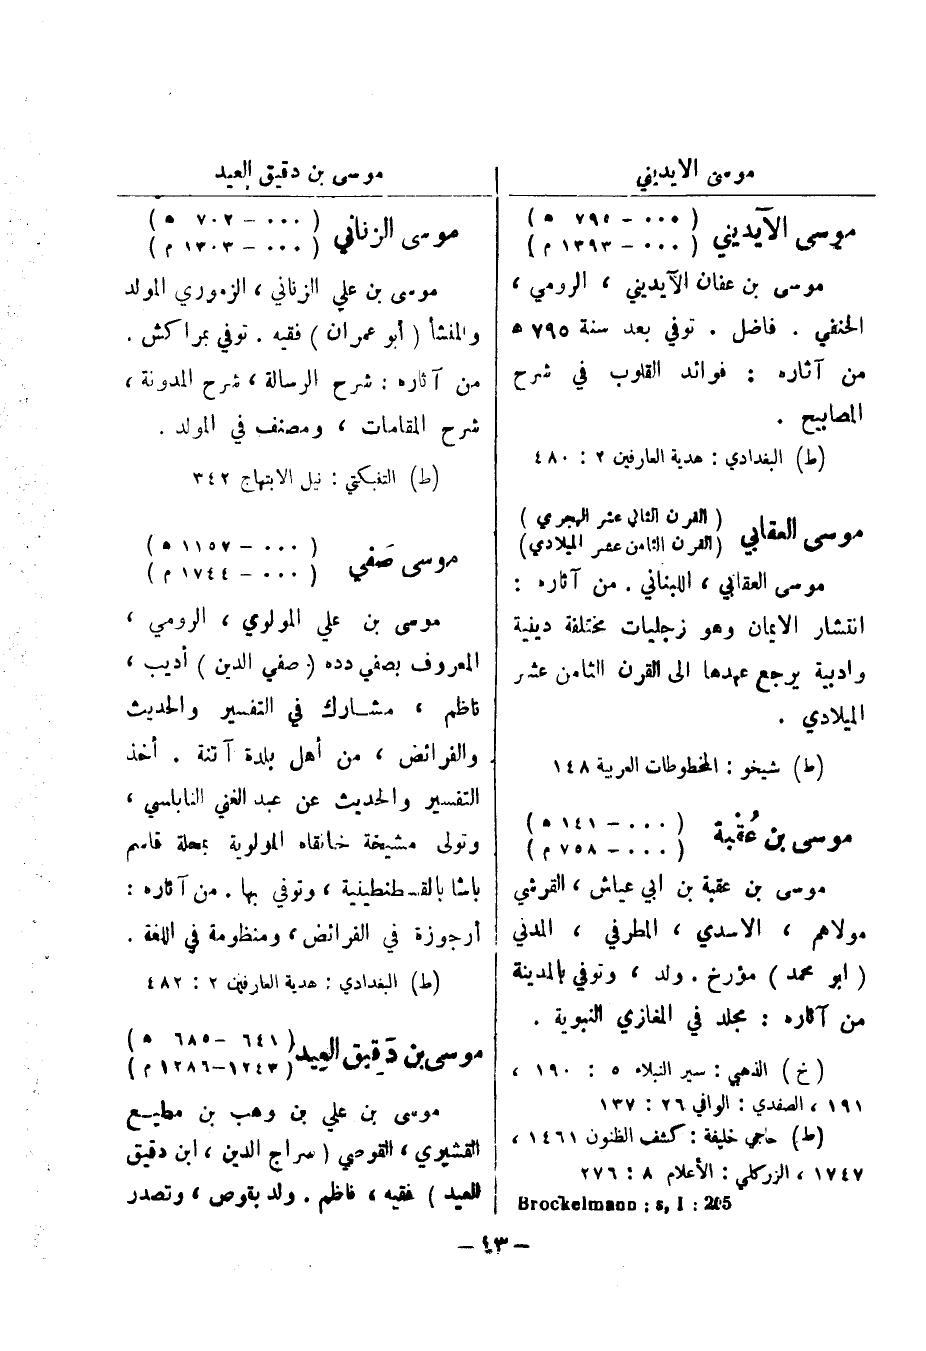 موسى الايديني
موسى الآيديني ( ٠٠٠ - ٧٩٥ ه )
( ٠٠٠ - ١٣٩٣ م )
موسى بن عفان الآيديني ، الرومي ،
الحنفي . فاضل . توفي بعد سنة ٧٩٥ ه
من آثاره : فوائد القلوب في شرح
المصابيح .
(ط) البغدادي : هدية العارفين ٢ : ٤٨٠
موسى العقابي ( القرن الثاني عشر الهجري )
( القرن الثامن عشر الميلادي)
موسى العقابي ، اللبناني . من آثاره :
انتشار الايمان وهو زجليات مختلفة دينية
وادبية يرجع عهدها الى القرن الثامن عشر
الميلادي .
(ط) شيخو : المخطوطات العربية ١٤٨
موسى بن عُقْبة ( ٠٠٠ - ١٤١ ه )
( ٠٠٠ - ٧٥٨ م )
موسى بن عقبة بن ابي عياش ، القرشي
مولاهم ، الاسدي ، المطرفي ، المدني
( ابو محمد ) مؤرخ . ولد ، وتوفي بالمدينة
من آثاره : مجلد في المغازي النبوية .
( خ ) الذهبي : سير النبلاء ٥ : ١٩٠ ،
١٩١ ، الصفدي : الوافي ٢٦ : ١٣٧
(ط) حاجي خليفة : كشف الظنون ١٤٦١ ،
١٧٤٧ ، الزركلي : الأعلام ٨ : ٢٧٦
Brockelmann : s, I : 205
موسى بن دقيق العيد
موسى الزناتي ( ٠٠٠ - ٧٠٢ ه )
( ٠٠٠ - ١٣٠٣ م )
موسى بن علي الزناتي ، الزموري المولد
والمنشأ ( أبو عمران ) فقيه . توفي بمراكش .
من آثاره : شرح الرسالة ، شرح المدونة ،
شرح المقامات ، ومصنف في المولد .
(ط) التنبكتي : نيل الابتهاج ٣٤٢
موسى صَفي ( ٠٠٠ - ١١٥٧ ه )
( ٠٠٠ - ١٧٤٤ م )
موسى بن علي المولوي ، الرومي ،
المعروف بصفي دده ( صفي الدين ) أديب ،
ناظم ، مشارك في التفسير والحديث
والفرائض ، من أهل بلدة آتنة . أخذ
التفسير والحديث عن عبد الغني النابلسي ،
وتولى مشيخة خانقاه المولوية بمحلة قاسم
باشا بالقسطنطينية ، وتوفي بها . من آثاره :
أرجوزة في الفرائض ، ومنظومة في اللغة .
(ط) البغدادي : هدية العارفين ٢ : ٤٨٢
موسى بن دَقيق العِيد ( ٦٤١ - ٦٨٥ ه )
( ١٢٤٣-١٢٨٦ م )
موسى بن علي بن وهب بن مطيع
القشيري ، القوصي ( سراج الدين ، ابن دقيق
العيد ) فقيه ، ناظم . ولد بقوص ، وتصدر
- ٤٣ -